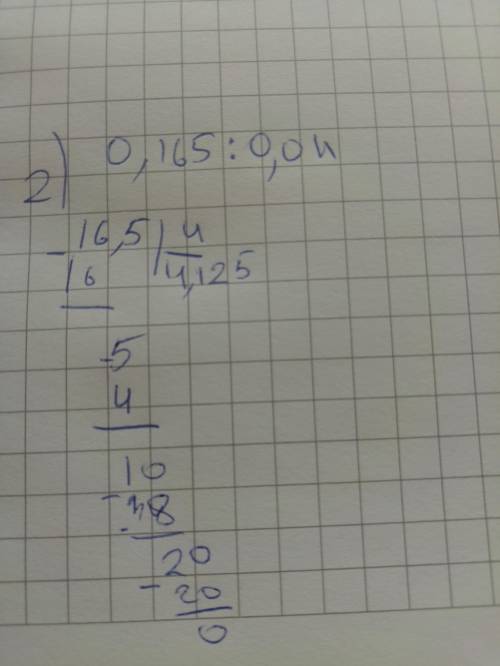 2) 0,165:0,04
-16,5|4
16 4,125
-5
4
10
- 8
20
-20
0